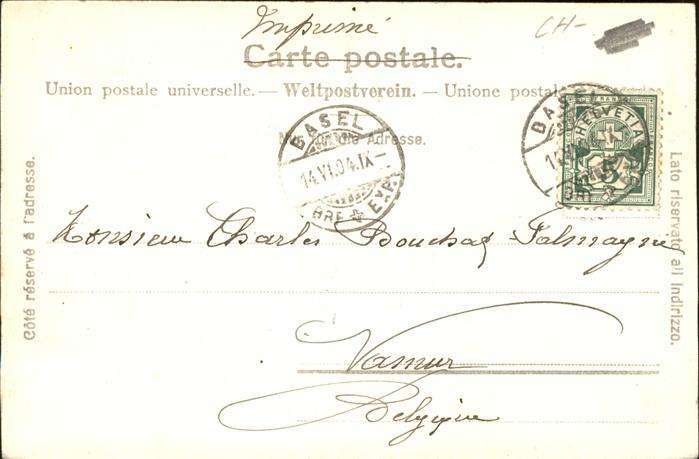 Imprimé
CH-
Carte postale.
Union postale universelle. — Weltpostverein. — Unione postal
Nur für die Adresse.
BASEL
14.VI.04.IX-
BRF. EXP.
BASEL
HELVETIA
FRANCO
5
Côté réservé à l'adresse.
Lato riservato all indirizzo.
Monsieur Charles
Namur
Belgique